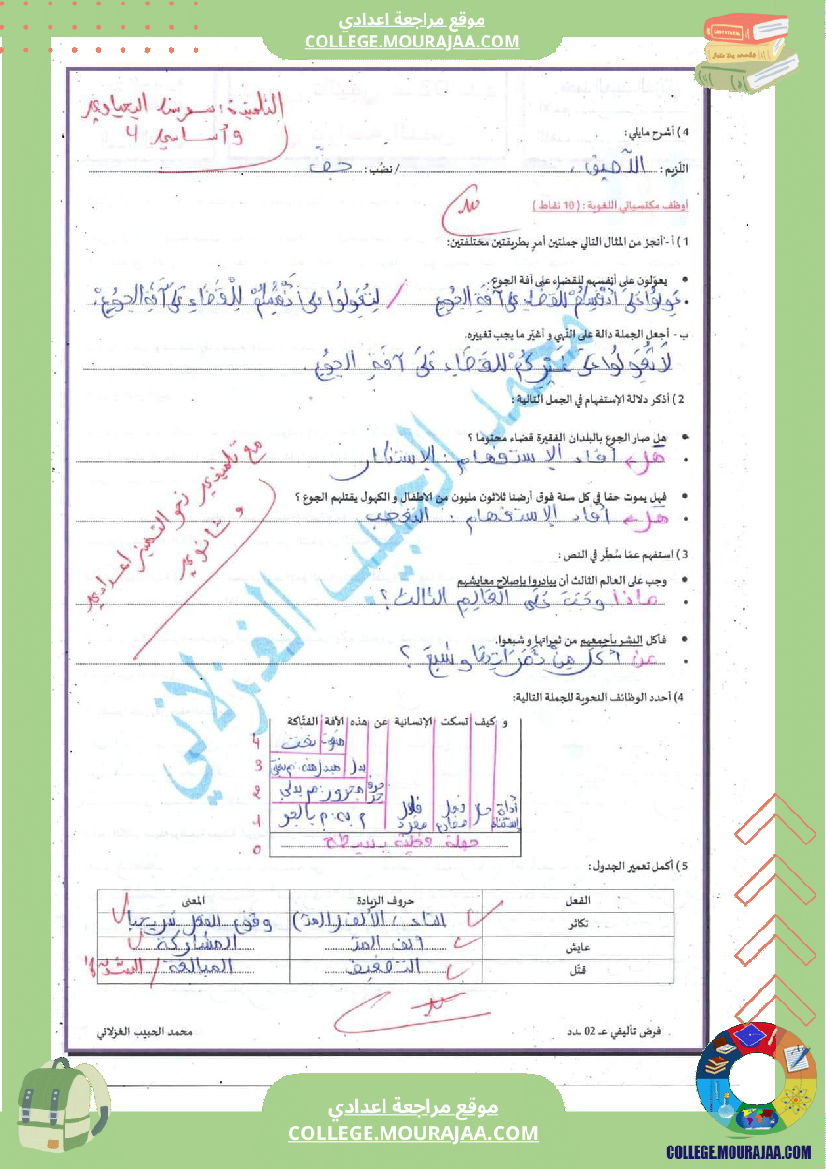 موقع مراجعة اعدادي
COLLEGE.MOURAJAA.COM
التلميذة :
9 أساسي 4
4 ) أشرح مايلي :
اللّزيم : اللّصيق / نضب : جفّ
أوظف مكتسباتي اللغوية : ( 10 نقاط )
1 ) أ - أنجز من المثال التالي جملتين أمر بطريقتين مختلفتين:
يعوّلون على أنفسهم للقضاء على آفة الجوع.
عَوِّلُوا عَلَى أَنْفُسِكُمْ للقضاء على آفة الجوع / لِتُعَوِّلُوا على أَنْفُسِكُمْ لِلْقَضَاءِ عَلَى آفَةِ الجُوعِ.
ب - أجعل الجملة دالة على النّهي و أغيّر ما يجب تغييره.
لَا تُعَوِّلُوا عَلَى غَيْرِكُمْ للقَضَاءِ عَلَى آفَةِ الجُوعِ.
2 ) أذكر دلالة الإستفهام في الجمل التالية :
هل صار الجوع بالبلدان الفقيرة قضاء محتوما ؟
هل ← أفاد الإستفهام : الإستنكار
فهل يموت حقا في كل سنة فوق أرضنا ثلاثون مليون من الأطفال و الكهول يقتلهم الجوع ؟
هل ← أفاد الإستفهام : التعجب
3 ) استفهم عمّا سُطِّر في النص :
وجب على العالم الثالث أن يبادروا بإصلاح معايشهم
ماذا وَجَبَ عَلَى العَالَمِ الثالث ؟
فأكل البشر بأجمعهم من ثمراتها و شبعوا.
مَنْ أَكَلَ مِنْ ثَمَرَاتِهَا و شَبِعَ ؟
مع تلميذي نحو التميز اعدادي
و ثانوي
محمد الحبيب الغزلاني
4) أحدد الوظائف النحوية للجملة التالية:
و كيف تسكت الإنسانية عن هذه الآفة الفتّاكة
4 نعت
3 بدل
2 حرف جر
1 أداة استفهام حال فعل مضارع فاعل مفرد م بالجر
0 جملة فعلية بسيطة
5 ) أكمل تعمير الجدول:
الفعل حروف الزيادة المعنى
تكاثر التاء / الألف (المدّ) وقوع الفعل تدريجيا
عايش ألف المدّ المشاركة
قتّل التضعيف المبالغة / الشدّة
فرض تأليفي عـ 02 ـدد محمد الحبيب الغزلاني
موقع مراجعة اعدادي
COLLEGE.MOURAJAA.COM
COLLEGE.MOURAJAA.COM